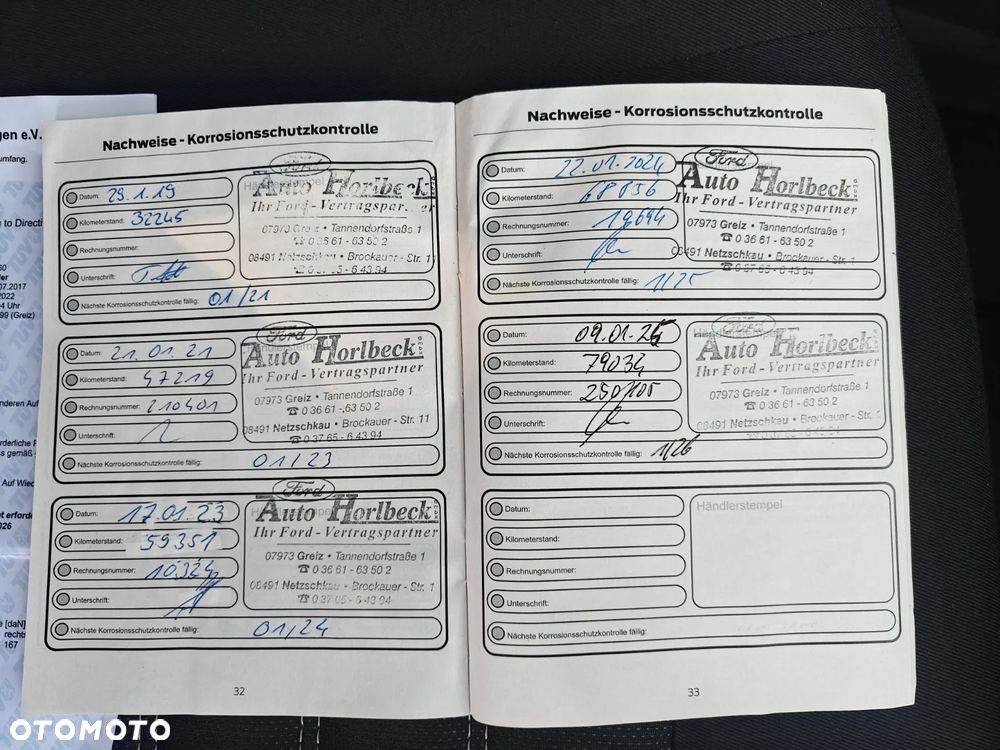 gen e.V.
umfang.
g to Directi
60
der
.07.2017
2022
4 Uhr
99 (Greiz)
nderen Auf
rderliche P
ss gemäß
Auf Wied
t erforde
026
e [daN]
rechts
167
Nachweise - Korrosionsschutzkontrolle
Datum: 29.1.19
Kilometerstand: 32245
Rechnungsnummer:
Unterschrift:
Nächste Korrosionsschutzkontrolle fällig: 01/21
Händlerstempel
Auto Horlbeck
Ihr Ford - Vertragspartner
07973 Greiz • Tannendorfstraße 1
☎ 0 36 61 - 63 50 2
08491 Netzschkau • Brockauer - Str. 11
☎ 0 37 65 - 6 43 94
Datum: 21.01.21
Kilometerstand: 47219
Rechnungsnummer: 210401
Unterschrift:
Nächste Korrosionsschutzkontrolle fällig: 01/23
Ford
Händlerstempel
Auto Horlbeck
Ihr Ford - Vertragspartner
07973 Greiz • Tannendorfstraße 1
☎ 0 36 61 - 63 50 2
08491 Netzschkau • Brockauer - Str. 11
☎ 0 37 65 - 6 43 94
Datum: 17.01.23
Kilometerstand: 59351
Rechnungsnummer: 10324
Unterschrift:
Nächste Korrosionsschutzkontrolle fällig: 01/24
Ford
Händlerstempel
Auto Horlbeck
Ihr Ford - Vertragspartner
07973 Greiz • Tannendorfstraße 1
☎ 0 36 61 - 63 50 2
08491 Netzschkau • Brockauer - Str. 1
☎ 0 37 65 - 6 43 94
32
Nachweise - Korrosionsschutzkontrolle
Datum: 22.01.2024
Kilometerstand: 68896
Rechnungsnummer: 19694
Unterschrift:
Nächste Korrosionsschutzkontrolle fällig: 1/25
Ford
Auto Horlbeck
Ihr Ford - Vertragspartner
07973 Greiz • Tannendorfstraße 1
☎ 0 36 61 - 63 50 2
08491 Netzschkau • Brockauer - Str. 11
☎ 0 37 65 - 6 43 94
Datum: 09.01.25
Kilometerstand: 79034
Rechnungsnummer: 250105
Unterschrift:
Nächste Korrosionsschutzkontrolle fällig: 1/26
Ford
Händlerstempel
Auto Horlbeck
Ihr Ford - Vertragspartner
07973 Greiz • Tannendorfstraße 1
☎ 0 36 61 - 63 50 2
08491 Netzschkau • Brockauer - Str.
☎ 0 37 65 - 6 43 94
Datum:
Kilometerstand:
Rechnungsnummer:
Unterschrift:
Nächste Korrosionsschutzkontrolle fällig:
Händlerstempel
33
OTOMOTO